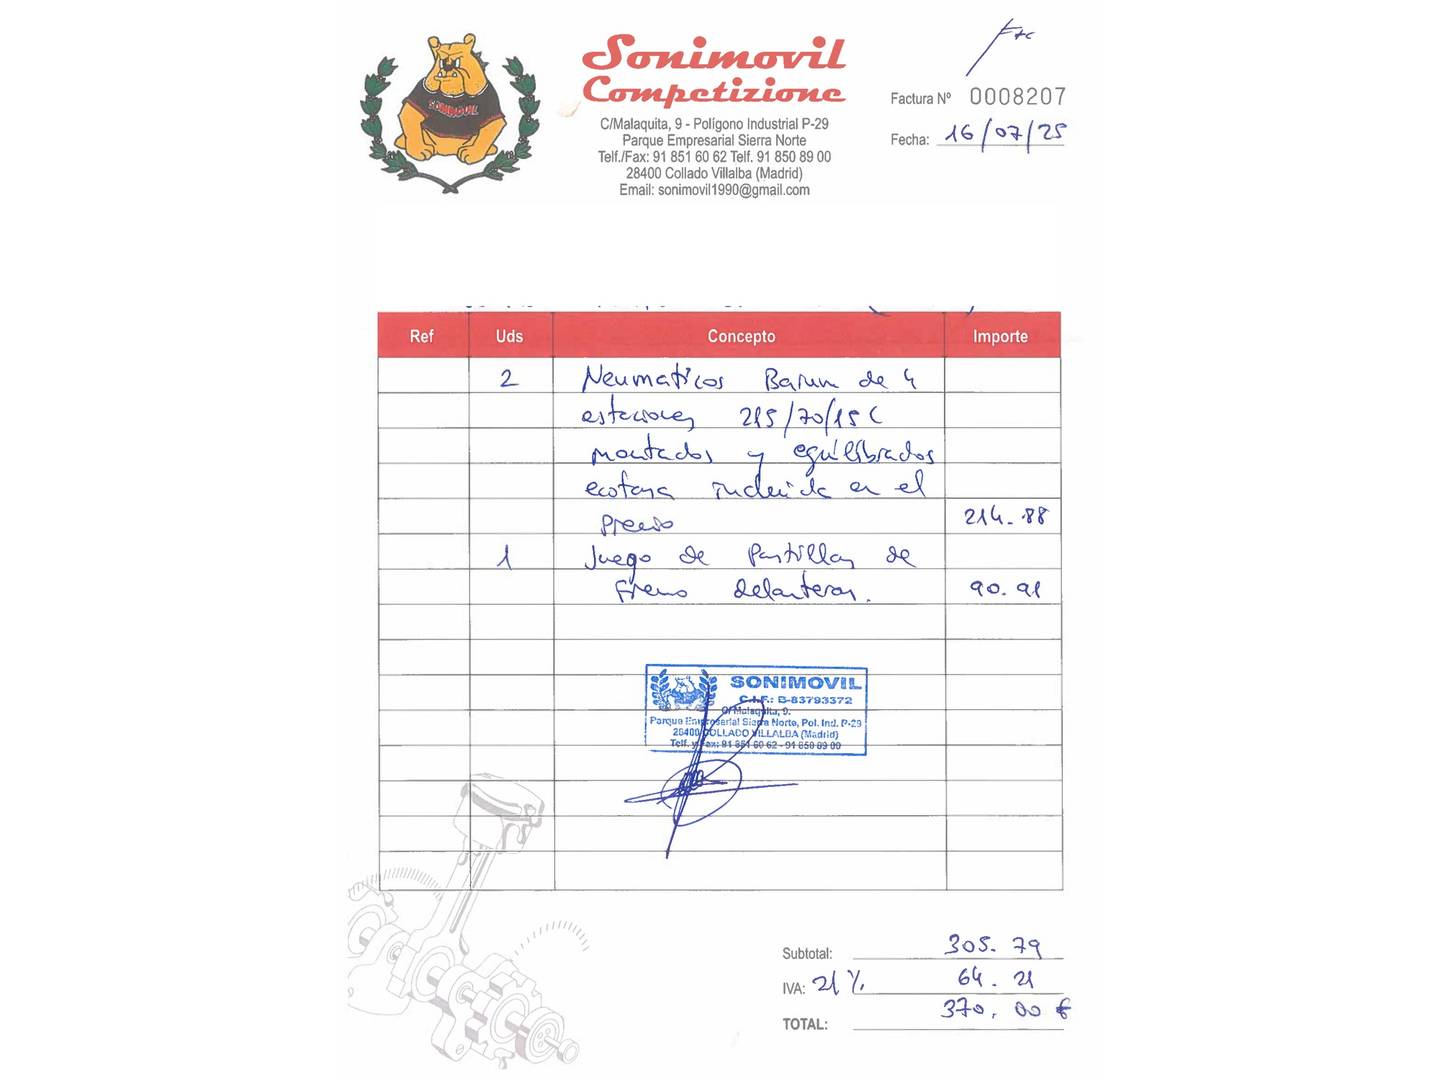 Sonimovil
Competizione
SONIMOVIL
C/Malaquita, 9 - Polígono Industrial P-29
Parque Empresarial Sierra Norte
Telf./Fax: 91 851 60 62 Telf. 91 850 89 00
28400 Collado Villalba (Madrid)
Email: sonimovil1990@gmail.com
Factura Nº 0008207
Fecha: 16/07/25
Ref Uds Concepto Importe
2 Neumaticos Barum de 4
estaciones 215/70/15C
montados y equilibrados
ecotasa incluida en el
precio 214.88
1 Juego de Pastillas de
Freno delanteras. 90.91
SONIMOVIL
C.I.F.: B-83793372
C/ Malaquita, 9.
Parque Empresarial Sierra Norte, Pol. Ind. P-29
28400 COLLADO VILLALBA (Madrid)
Telf. y Fax: 91 851 60 62 - 91 850 89 00
Subtotal: 305.79
IVA: 21% 64.21
TOTAL: 370.00 €